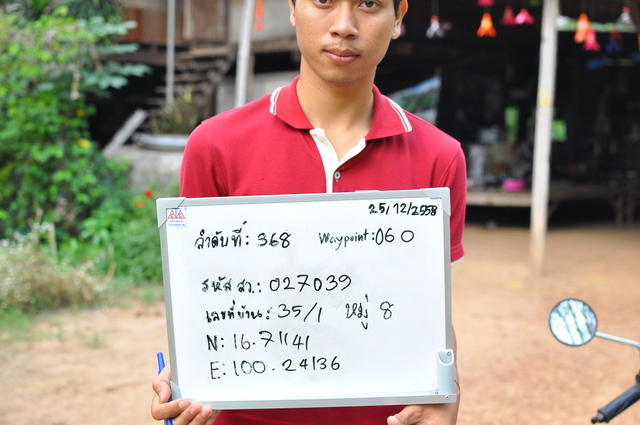 25/12/2558
ลำดับที่: 368 Waypoint: 060
รหัส สว.: 027039
เลขที่บ้าน: 35/1 หมู่ 8
N: 16.71141
E: 100.24136